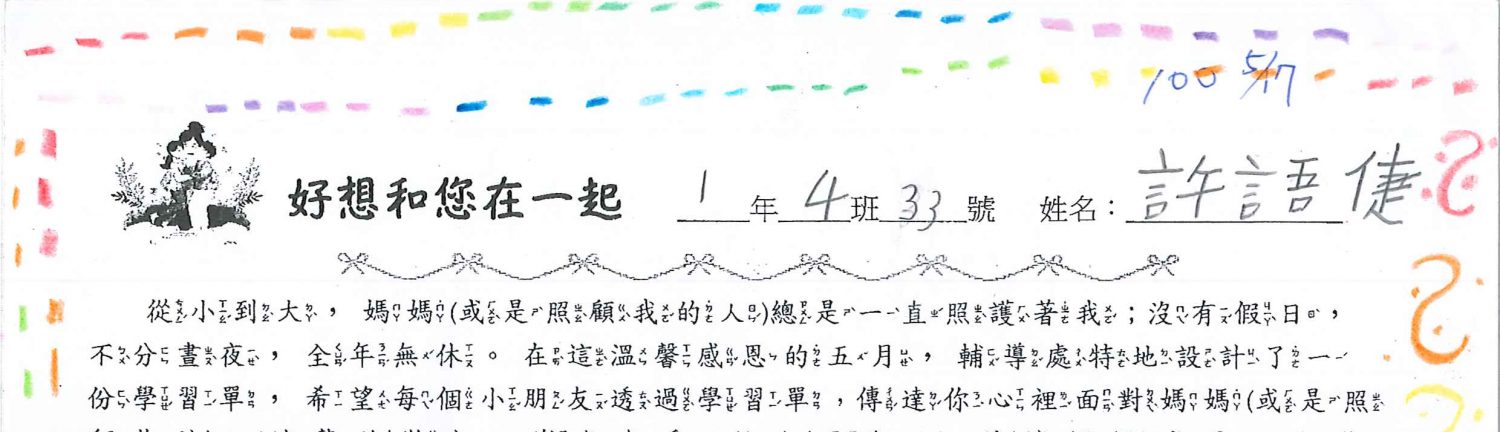 100 5/17
好想和您在一起 1年4班33號 姓名：許語倢
從小到大，媽媽(或是照顧我的人)總是一直照護著我；沒有假日，
不分晝夜，全年無休。在這溫馨感恩的五月，輔導處特地設計了一
份學習單，希望每個小朋友透過學習單，傳達你心裡面對媽媽(或是照